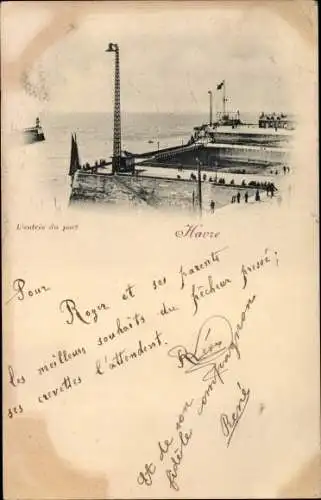 L'entrée du port
Havre
Pour Roger et ses parents
les meilleurs souhaits du pêcheur pressé;
ses crevettes l'attendent.
Et de son
fidèle compagnon
René